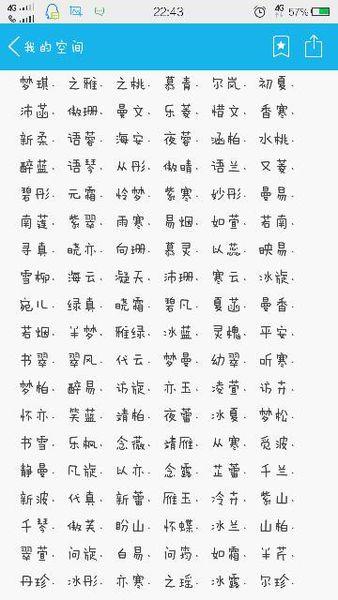 4G 4G 22:43 4G 57%
我的空间
梦琪. 之雅. 之桃. 慕青. 尔岚. 初夏.
沛菡. 傲珊. 曼文. 乐菱. 惜文. 香寒.
新柔. 语蓉. 海安. 夜蓉. 涵柏. 水桃.
醉蓝. 语琴. 从彤. 傲晴. 语兰. 又菱.
碧彤. 元霜. 怜梦. 紫寒. 妙彤. 曼易.
南莲. 紫翠. 雨寒. 易烟. 如萱. 若南.
寻真. 晓亦. 向珊. 慕灵. 以蕊. 映易.
雪柳. 海云. 凝天. 沛珊. 寒云. 冰旋.
宛儿. 绿真. 晓霜. 碧凡. 夏菡. 曼香.
若烟. 半梦. 雅绿. 冰蓝. 灵槐. 平安.
书翠. 翠风. 代云. 梦曼. 幼翠. 听寒.
梦柏. 醉易. 访旋. 亦玉. 凌萱. 访卉.
怀亦. 笑蓝. 靖柏. 夜蕾. 冰夏. 梦松.
书雪. 乐枫. 念薇. 靖雁. 从寒. 觅波.
静曼. 凡旋. 以亦. 念露. 芷蕾. 千兰.
新波. 代真. 新蕾. 雁玉. 冷卉. 紫山.
千琴. 傲芙. 盼山. 怀蝶. 冰兰. 山柏.
翠萱. 问旋. 白易. 问筠. 如霜. 半芹.
丹珍. 冰彤. 亦寒. 之瑶. 冰露. 尔珍.